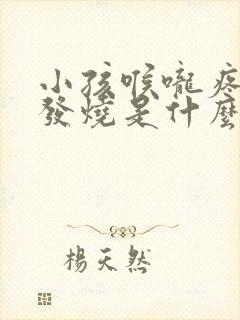 小孩喉嚨疼
發燒是什麼
楊天然